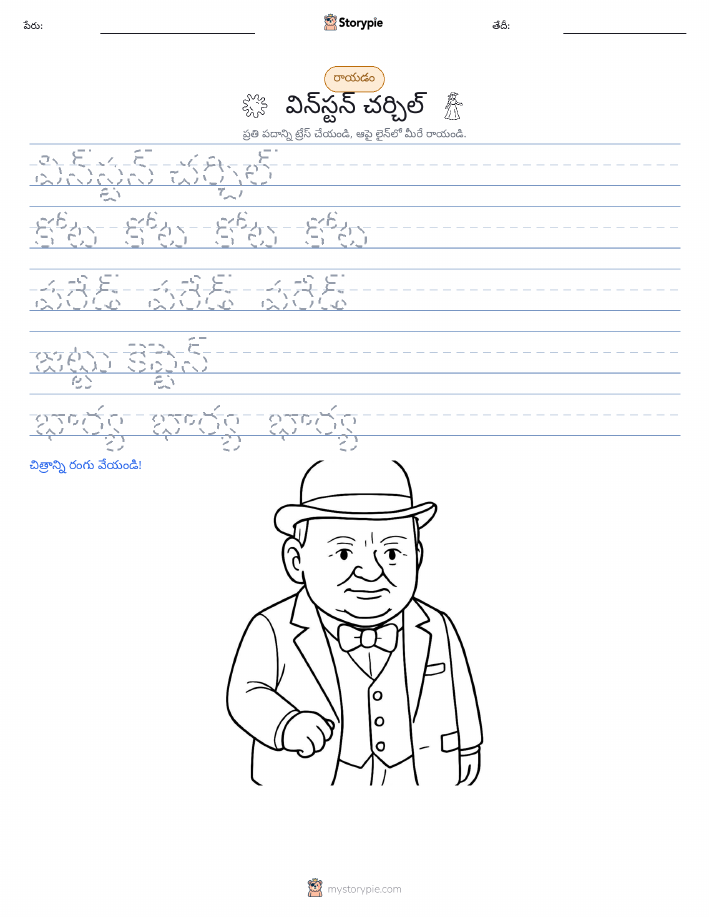 పేరు:
Storypie
తేదీ:
రాయడం
విన్‌స్టన్ చర్చిల్
ప్రతి పదాన్ని ట్రేస్ చేయండి, ఆపై లైన్‌లో మీరే రాయండి.
విన్‌స్టన్ చర్చిల్
కోట కోట కోట కోట
పరేడ్ పరేడ్ పరేడ్
జట్టు కెప్టెన్
భార్య భార్య భార్య
చిత్రాన్ని రంగు వేయండి!
mystorypie.com